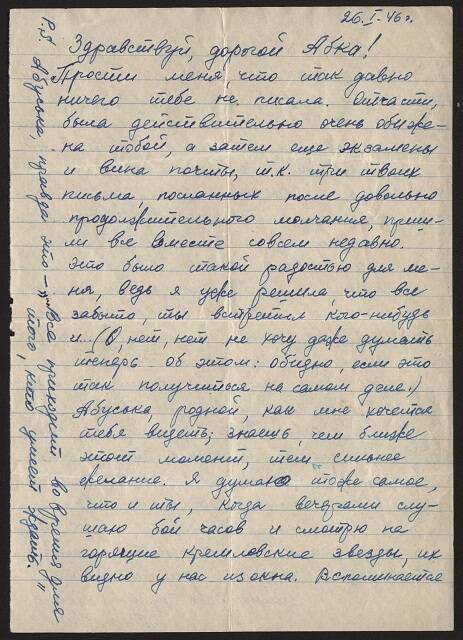 26.I.46 г.
Здравствуй, дорогой Абка!
Прости меня что так давно
ничего тебе не писала. Отчасти,
была действительно очень обиже-
на тобой, а затем еще экзамены
и вина почты, т.к. три твоих
письма, посланных после довольно
продолжительного молчания, приш-
ли все вместе совсем недавно.
Это было такой радостью для ме-
ня, ведь я уже решила, что все
забыто, ты встретил кого-нибудь
и.. (О, нет, нет не хочу даже думать
теперь об этом: обидно, если это
так получиться на самом деле.)
Абуська, родной, как мне хочется
тебя видеть; знаешь, чем ближе
этот момент, тем сильнее
желание. Я думаю тоже самое,
что и ты, когда вечерами слу-
шаю бой часов и смотрю на
горящие кремлевские звезды, их
видно у нас из окна. Вспоминается
P.S. Абуська, правда это – „Все приходит во время для
того, кто умеет ждать."